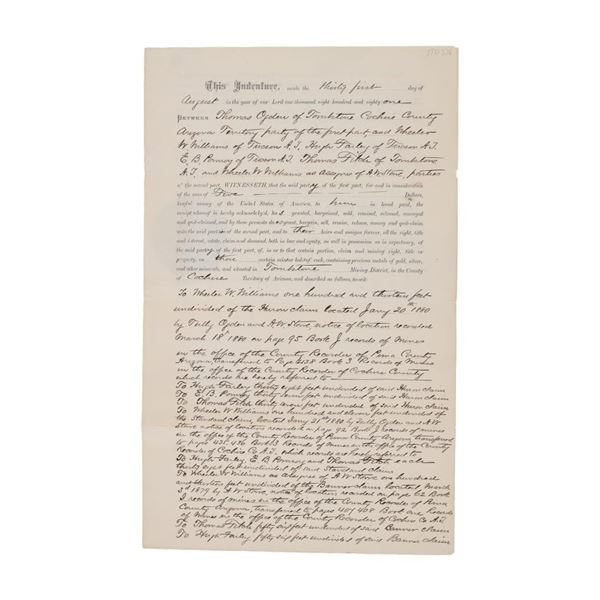 This Indenture, made the thirty first day of
August in the year of our Lord one thousand eight hundred and eighty one
BETWEEN Thomas Ogden of Tombstone Cochise County
Arizona Territory party of the first part, and Wheeler
W Williams of Tucson A.T. Hugh Farley of Tucson A.T.
E. B. Pomroy of Tucson A.T. Thomas Fitch of Tombstone
A.T. and Wheeler W Williams as assignee of A.W. Stowe, parties
of the second part, WITNESSETH, that the said party of the first part, for and in consideration
of the sum of Five Dollars,
lawful money of the United States of America, to him in hand paid, the
receipt whereof is hereby acknowledged, has granted, bargained, sold, remised, released, conveyed
and quit-claimed, and by these presents does grant, bargain, sell, remise, release, convey and quit-claim
unto the said parties of the second part, and to their heirs and assigns forever, all the right, title
and interest, estate, claim and demand, both in law and equity, as well in possession as in expectancy, of
the said party of the first part, of, in or to that certain portion, claim and mining right, title or
property, on those certain
containing precious metals of gold, silver,
and other minerals, and situated in Tombstone Mining District, in the County
of Cochise Territory of Arizona, and described as follows, to-wit:
To Wheeler W. Williams one hundred and thirteen feet
undivided of the Huron claim located Jany 20th 1880
by Tully Ogden and A.W. Stowe, notice of location recorded
March 18th 1880 on page 95 Book J records of Mines
in the office of the County Recorder of Pima County
Arizona, transferred to page Book 3 Records of Mines
in the office of the County Recorder of Cochise County
which records are hereby referred to
To Hugh Farley thirty eight feet undivided of said Huron claim
To E. B. Pomroy thirty seven feet undivided of said Huron claim
To Thomas Fitch thirty seven feet undivided of said Huron claim
To Wheeler W Williams one hundred and eleven feet undivided of
the Standard claim located Jany 21st 1880 by Tully Ogden and A.W.
Stowe notice of location recorded on page 92 Book J records of mines
in the office of the County Recorder of Pima County Arizona transferred
to pages 435, 436 Book 3 Records of Mines in the office of the County
Recorder of Cochise Co A.T. which records are hereby referred to
To Hugh Farley, E B Pomroy and Thomas Fitch each
thirty eight feet undivided of said Standard claim
To Wheeler W Williams as assignee of A W Stowe one hundred
and thirteen feet undivided of the Banner claim located March
3d 1879 by A W Stowe, notice of location recorded on page 62 Book
records of mines in the office of the County Recorder of Pima
County Arizona, transferred to pages 407, 408 Book Records
of Mines in the office of the County Recorder of Cochise Co A.T.
To Thomas Fitch fifty six feet undivided of said Banner claim
To Hugh Farley fifty six feet undivided of said Banner claim